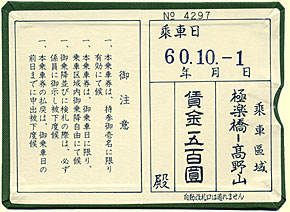 № 4297
乗車日
60.10.-1
年 月 日
乗車區域
極楽橋―高野山
賃金 五百圓
殿
自動改札口は通れません
御注意
一、本乗車券は、持参御壱名に限り
有効にて候
一、本乗車券は、御乗車日に限り、
乗車区域内御乗降自由にて候
一、御乗降並びに検札の際は、必ず
係員に御示し被下度候
一、本乗車券の払戻は、御乗車日の
前日までに申出被下度候